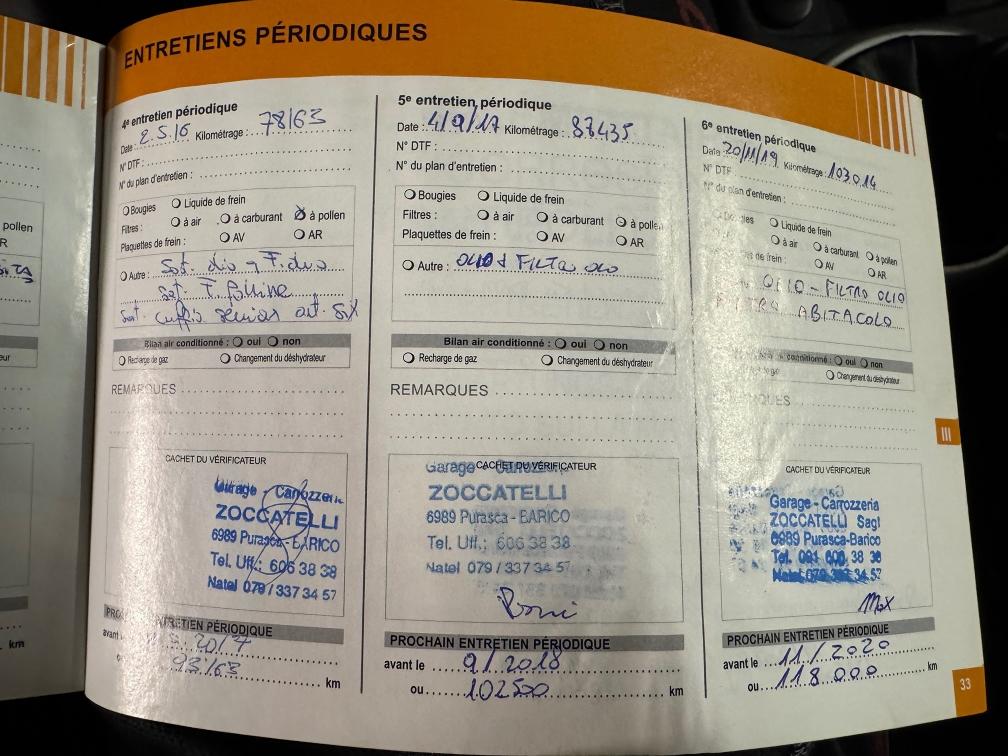 ENTRETIENS PÉRIODIQUES
4e entretien périodique
Date : 2.5.16 Kilométrage : 78163
N° DTF :
N° du plan d'entretien :
Bougies Liquide de frein
Filtres : à air à carburant à pollen
Plaquettes de frein : AV AR
Autre : Sost. olio
Bilan air conditionné : oui non
Recharge de gaz Changement du déshydrateur
REMARQUES
CACHET DU VÉRIFICATEUR
Garage - Carrozzeria
ZOCCATELLI
6989 Purasca - BARICO
Tel. Uff.: 606 38 38
Natel 079 / 337 34 57
PROCHAIN ENTRETIEN PÉRIODIQUE
avant le 2017
ou 93163 km
5e entretien périodique
Date : 4/9/17 Kilométrage : 87435
N° DTF :
N° du plan d'entretien :
Bougies Liquide de frein
Filtres : à air à carburant à pollen
Plaquettes de frein : AV AR
Autre : OLIO + FILTRO OLIO
Bilan air conditionné : oui non
Recharge de gaz Changement du déshydrateur
REMARQUES
CACHET DU VÉRIFICATEUR
Garage
ZOCCATELLI
6989 Purasca - BARICO
Tel. Uff.: 606 38 38
Natel 079 / 337 34 57
PROCHAIN ENTRETIEN PÉRIODIQUE
avant le 9/2018
ou 102500 km
6e entretien périodique
Date 20/11/19 Kilométrage : 103014
N° DTF
N° du plan d'entretien :
Liquide de frein
à air à carburant à pollen
de frein : AV AR
OLIO - FILTRO OLIO
FILTRO ABITACOLO
conditionné : oui non
Changement du déshydrateur
CACHET DU VÉRIFICATEUR
Garage - Carrozzeria
ZOCCATELLI Sagl
6989 Purasca-Barico
Tel. 091 606 38 38
Natel 079 34 57
Max
PROCHAIN ENTRETIEN PÉRIODIQUE
avant le 11/2020
ou 118000 km
III
33
pollen
R
km